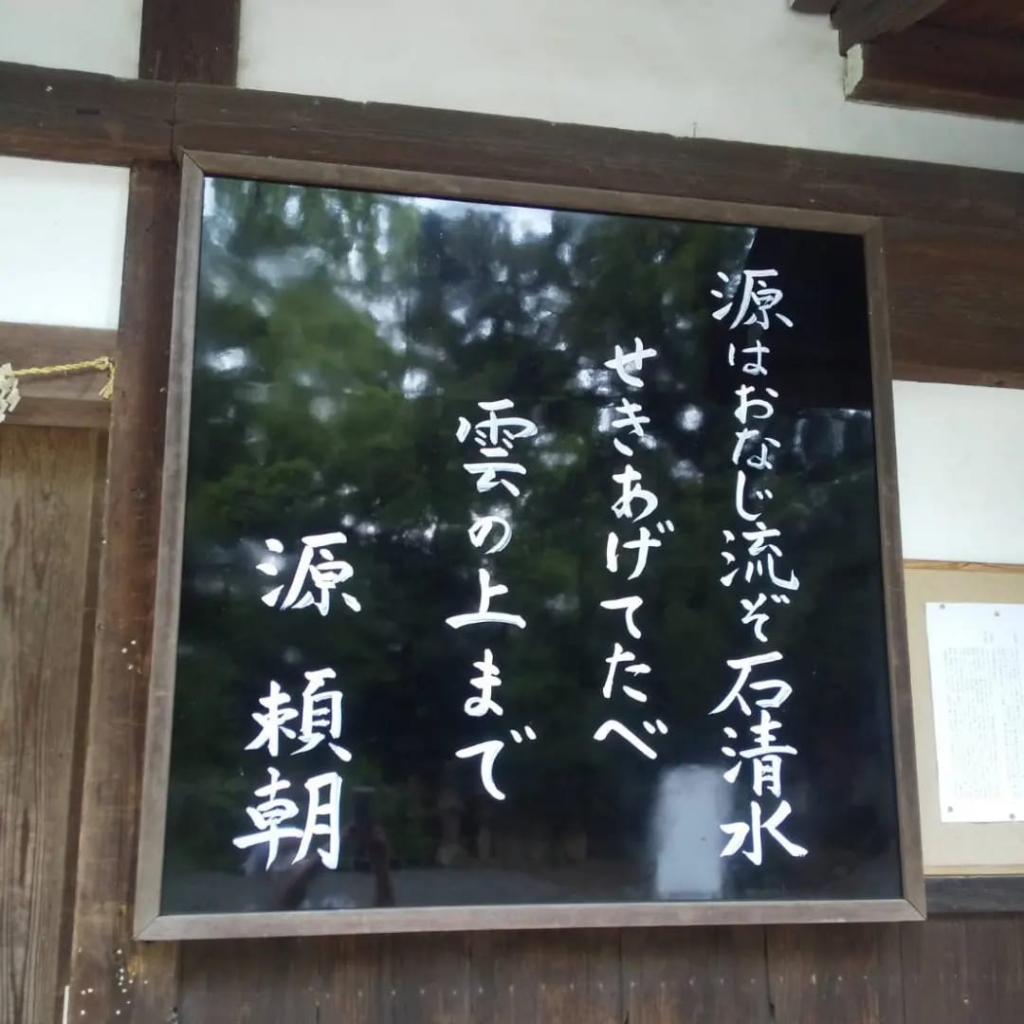 源はおなじ流ぞ石清水
せきあげてたべ
雲の上まで
源 頼朝